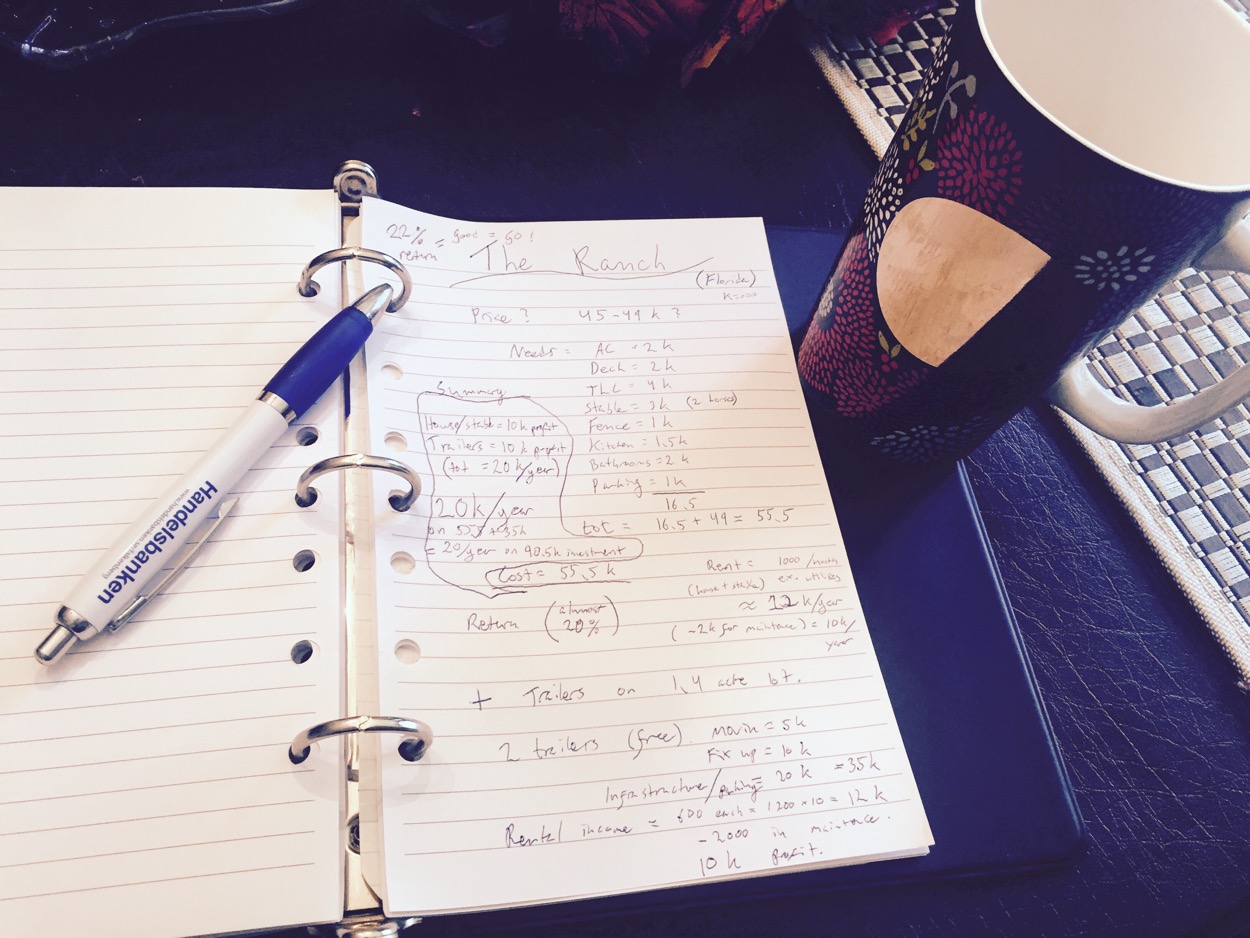 22% = good = go!
return
The Ranch
(Florida)
k=000
Price? 45-49 k?
Needs = AC = 2k
Deck = 2k
TLC = 4k
Stable = 3k (2 horses)
Fence = 1k
Kitchen = 1,5k
Bathrooms = 2k
Parking = 1k
16,5
tot = 16,5 + 49 = 55,5
Summary
House/stable = 10k profit
Trailers = 10k profit
(tot = 20k/year)
20k/year
on 55,5 + 35k
= 20/year on 90,5k investment
Cost = 55,5 k
Rent = 1000/month
(house + stable) ex. utilities
≈ 12k/year
(-2k for maintance) = 10k/
year
Return (almost
20%)
+ Trailers on 1,4 acre lot.
2 trailers (free). Movin = 5k
Fix up = 10k
Infrastructure/parking = 20k = 35k
Rental income = 600 each = 1200 x 10 = 12k
-2000 in maintance.
10k profit.
Handelsbanken